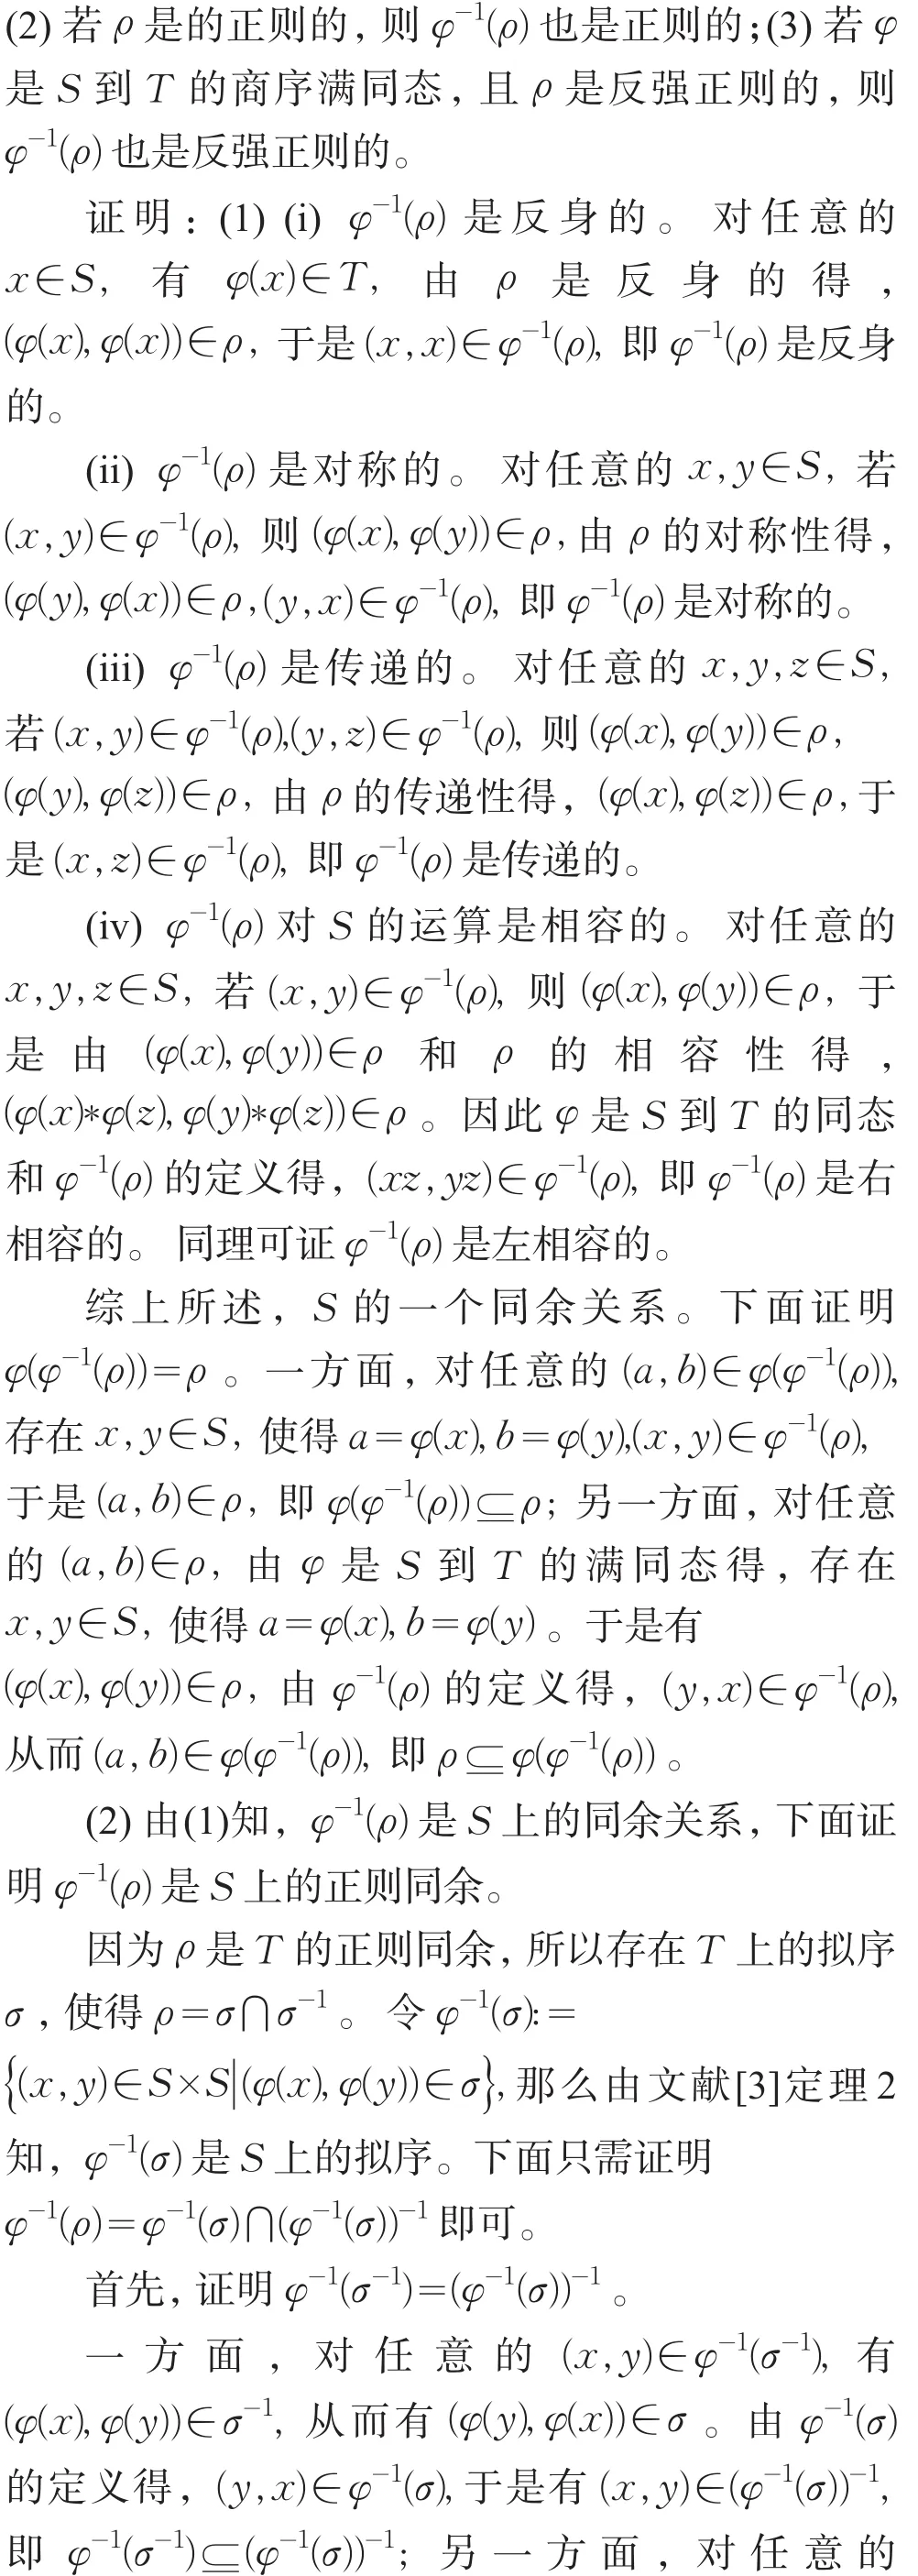 (2) 若 ρ 是的正则的，则 φ⁻¹(ρ) 也是正则的；(3) 若 φ
是 S 到 T 的商序满同态，且 ρ 是反强正则的，则
φ⁻¹(ρ) 也是反强正则的。
证明：(1) (i) φ⁻¹(ρ) 是反身的。对任意的
x∈S, 有 φ(x)∈T, 由 ρ 是反身的得，
(φ(x), φ(x))∈ρ, 于是 (x, x)∈φ⁻¹(ρ), 即 φ⁻¹(ρ) 是反身
的。
(ii) φ⁻¹(ρ) 是对称的。对任意的 x, y∈S, 若
(x, y)∈φ⁻¹(ρ), 则 (φ(x), φ(y))∈ρ, 由 ρ 的对称性得，
(φ(y), φ(x))∈ρ, (y, x)∈φ⁻¹(ρ), 即 φ⁻¹(ρ) 是对称的。
(iii) φ⁻¹(ρ) 是传递的。对任意的 x, y, z∈S,
若 (x, y)∈φ⁻¹(ρ),(y, z)∈φ⁻¹(ρ), 则 (φ(x), φ(y))∈ρ,
(φ(y), φ(z))∈ρ, 由 ρ 的传递性得，(φ(x), φ(z))∈ρ, 于
是 (x, z)∈φ⁻¹(ρ), 即 φ⁻¹(ρ) 是传递的。
(iv) φ⁻¹(ρ) 对 S 的运算是相容的。对任意的
x, y, z∈S, 若 (x, y)∈φ⁻¹(ρ), 则 (φ(x), φ(y))∈ρ, 于
是由 (φ(x), φ(y))∈ρ 和 ρ 的相容性得，
(φ(x)*φ(z), φ(y)*φ(z))∈ρ 。因此 φ 是 S 到 T 的同态
和 φ⁻¹(ρ) 的定义得，(xz, yz)∈φ⁻¹(ρ), 即 φ⁻¹(ρ) 是右
相容的。同理可证 φ⁻¹(ρ) 是左相容的。
综上所述，S 的一个同余关系。下面证明
φ(φ⁻¹(ρ))=ρ 。一方面，对任意的 (a, b)∈φ(φ⁻¹(ρ)),
存在 x, y∈S, 使得 a=φ(x), b=φ(y),(x, y)∈φ⁻¹(ρ),
于是 (a, b)∈ρ, 即 φ(φ⁻¹(ρ))⊆ρ; 另一方面，对任意
的 (a, b)∈ρ, 由 φ 是 S 到 T 的满同态得，存在
x, y∈S, 使得 a=φ(x), b=φ(y) 。于是有
(φ(x), φ(y))∈ρ, 由 φ⁻¹(ρ) 的定义得，(y, x)∈φ⁻¹(ρ),
从而 (a, b)∈φ(φ⁻¹(ρ)), 即 ρ⊆φ(φ⁻¹(ρ)) 。
(2) 由(1)知，φ⁻¹(ρ) 是 S 上的同余关系，下面证
明 φ⁻¹(ρ) 是 S 上的正则同余。
因为 ρ 是 T 的正则同余，所以存在 T 上的拟序
σ ，使得 ρ=σ⋂σ⁻¹ 。令 φ⁻¹(σ):=
{(x, y)∈S×S|(φ(x), φ(y))∈σ}, 那么由文献[3]定理 2
知，φ⁻¹(σ) 是 S 上的拟序。下面只需证明
φ⁻¹(ρ)=φ⁻¹(σ)⋂(φ⁻¹(σ))⁻¹ 即可。
首先，证明 φ⁻¹(σ⁻¹)=(φ⁻¹(σ))⁻¹ 。
一方面，对任意的 (x, y)∈φ⁻¹(σ⁻¹), 有
(φ(x), φ(y))∈σ⁻¹, 从而有 (φ(y), φ(x))∈σ 。由 φ⁻¹(σ)
的定义得，(y, x)∈φ⁻¹(σ), 于是有 (x, y)∈(φ⁻¹(σ))⁻¹,
即 φ⁻¹(σ⁻¹)⊆(φ⁻¹(σ))⁻¹; 另一方面，对任意的